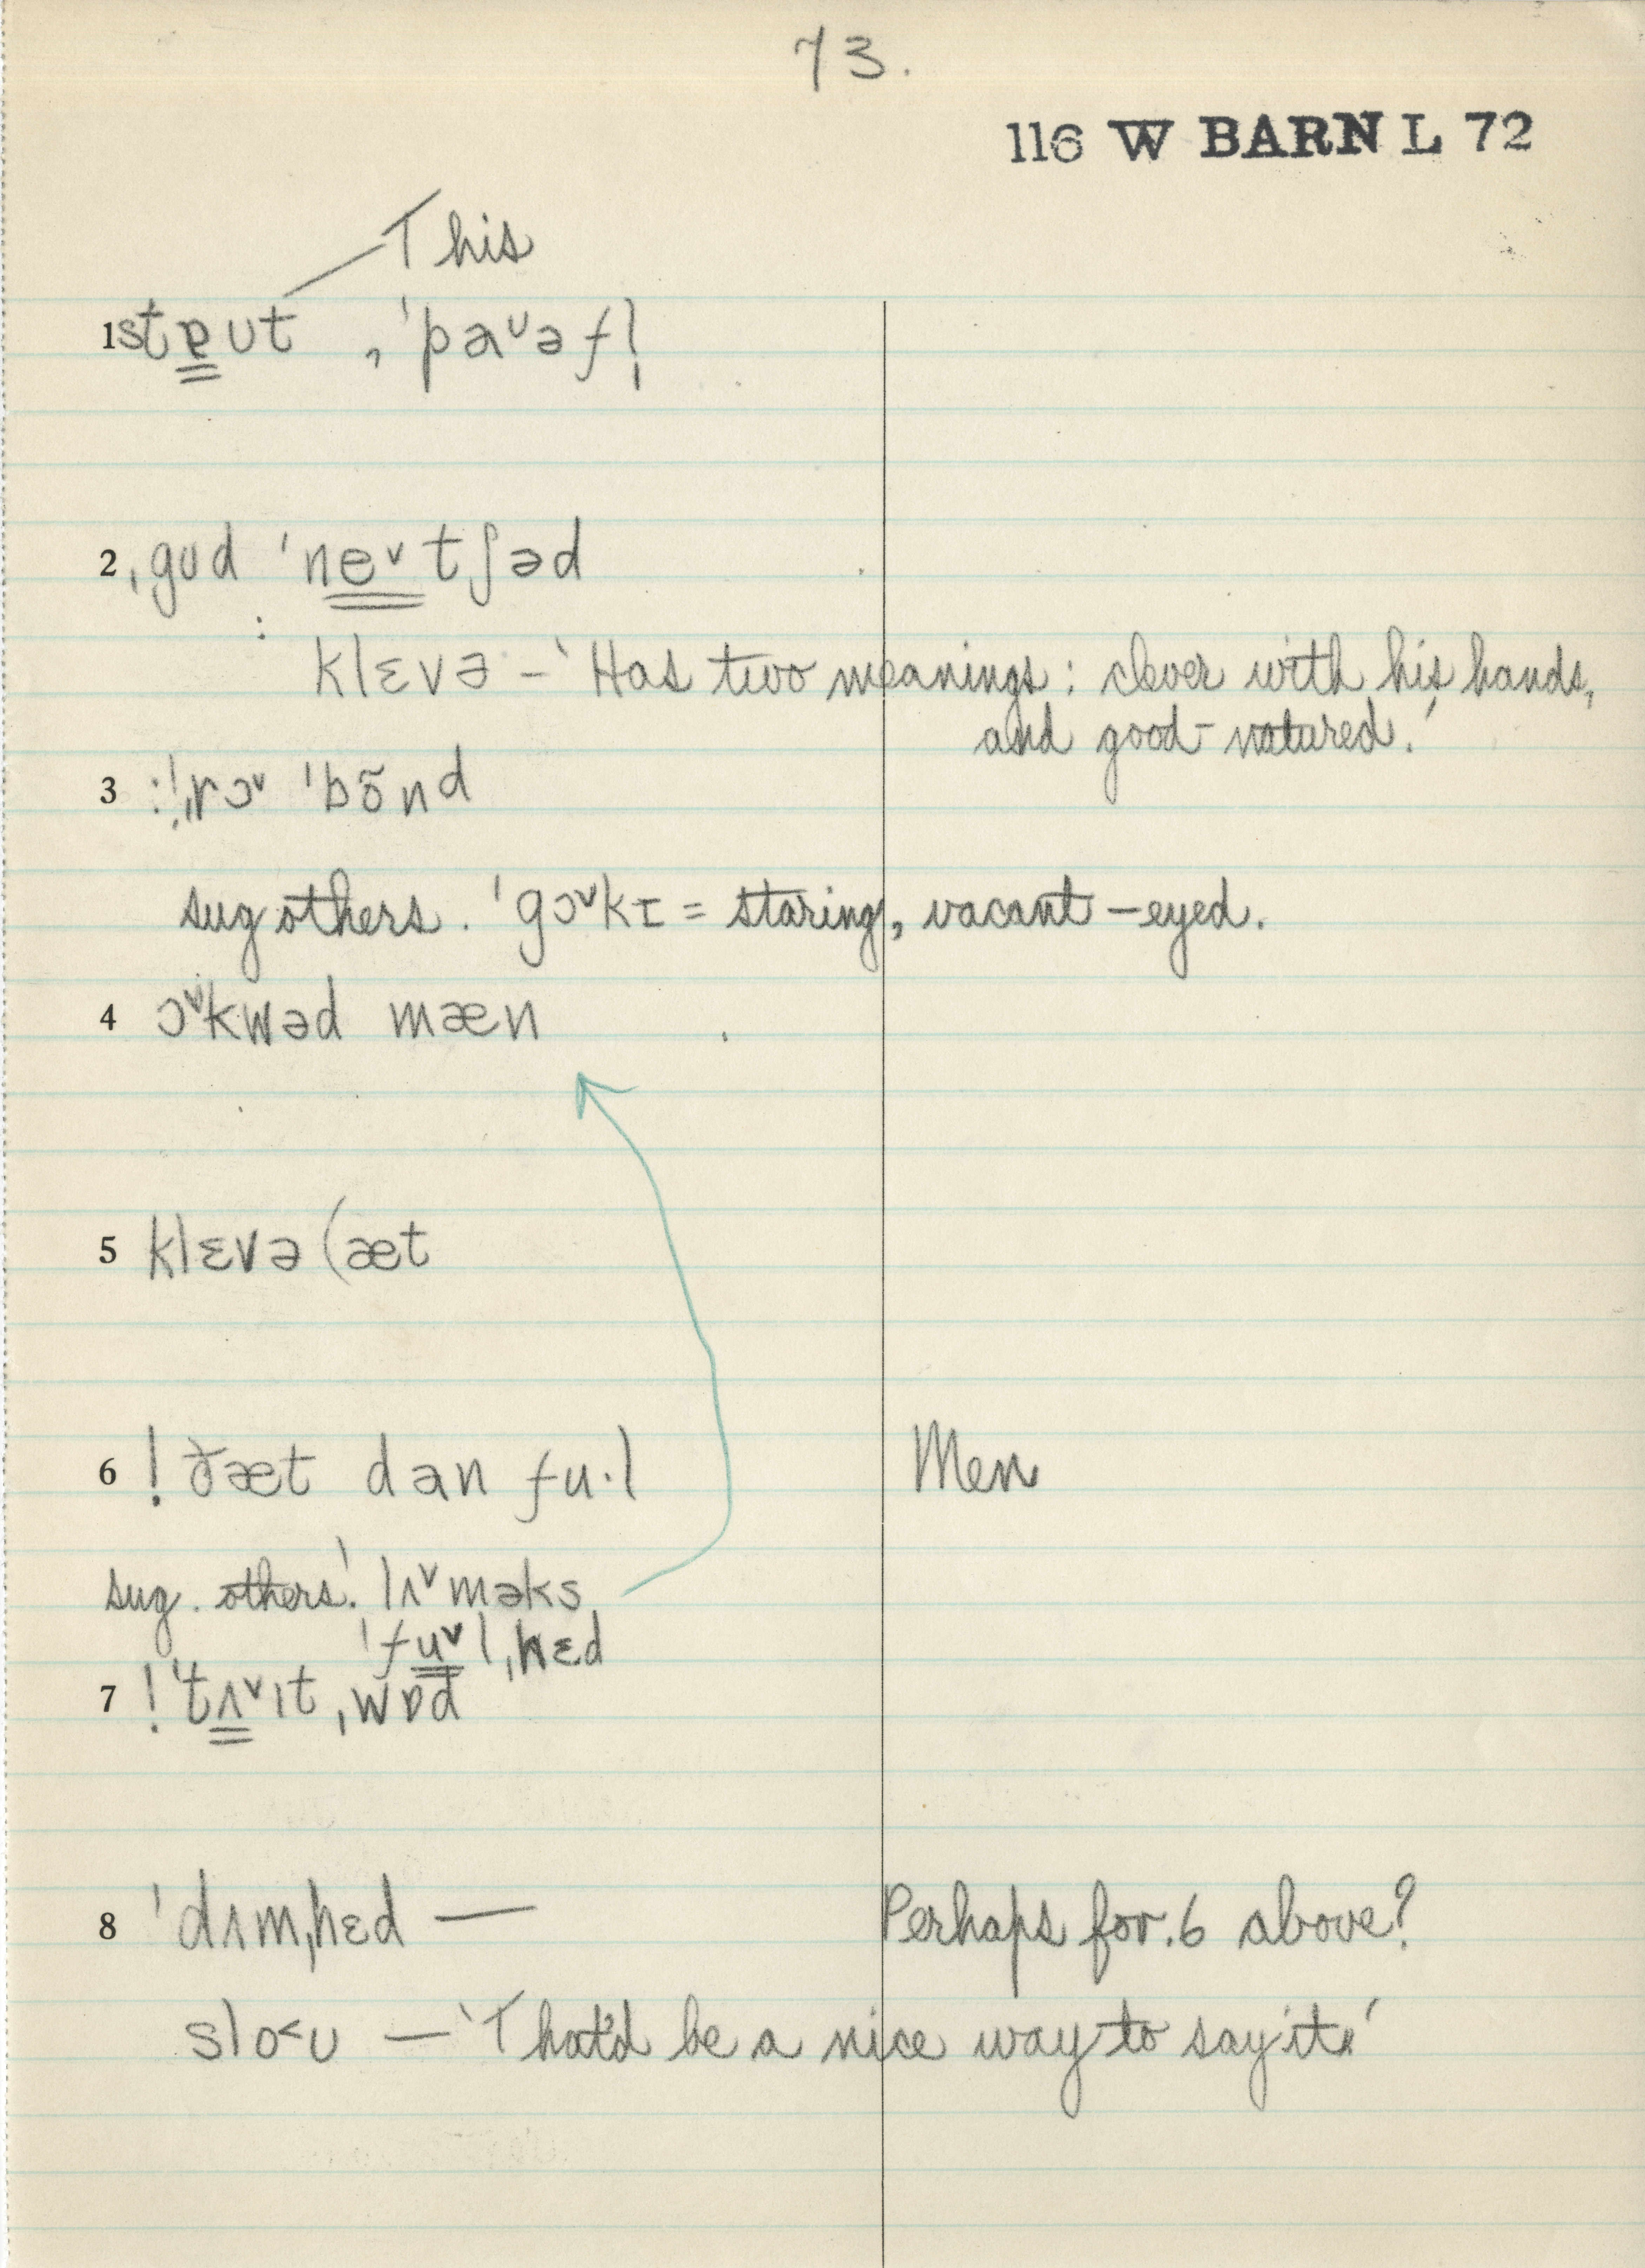 73.
116 W BARN L 72
This
1 stɐut , ˈpaᵘəfl̩
2 ˌgud ˈneᵛtʃəd
: klɛvə – 'Has two meanings: clever with his hands,
and good-natured.'
3 :!ˌrɔᵛ ˈbõnd
sug others. ˈgɔᵛkɪ = staring, vacant-eyed.
4 ɔᵛkwəd mæn
5 klɛvə (æt
6 ! ðæt dan fu·l Men
sug. others! lʌᵛməks
ˈfuᵛlˌhɛd
7 ! ˈtʌᵛɪtˌwɒd
8 ˈdʌmˌhɛd — Perhaps for 6 above?
slo<u — 'That'd be a nice way to say it.'